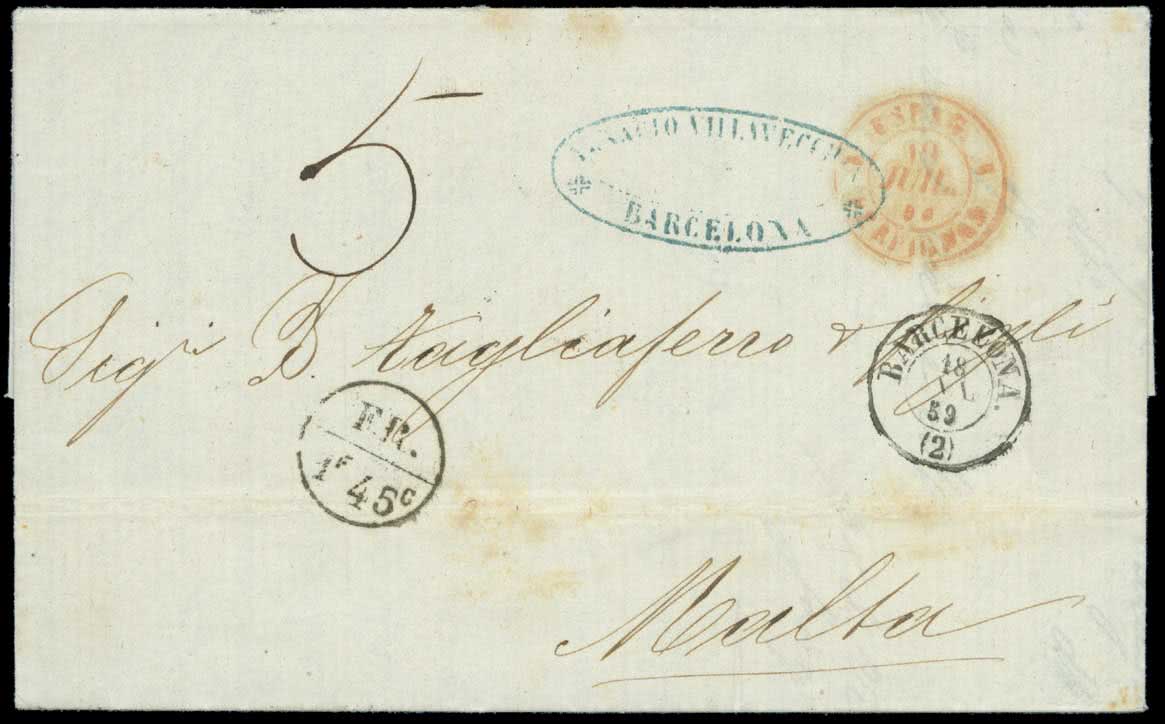 5
IGNACIO VILLAVECCHIA
BARCELONA
ESPAG. 1
19
JUIL.
PERPIGNAN
Sigri D. Tagliaferro & figli
BARCELONA.
18
JL
59
(2)
F.R.
1F 45C
Malta